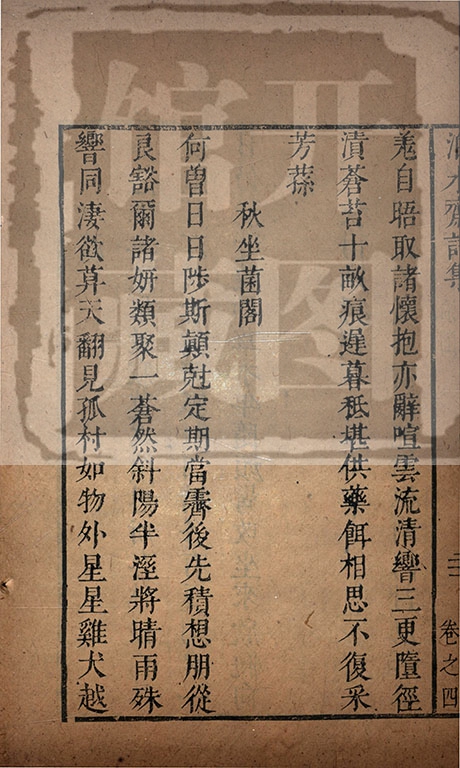 水齋詩集
卷之四
羗自晤取諸懷抱亦辭喧雲流清響三更墮徑
漬蒼苔十畝痕遲暮秪堪供藥餌相思不復采
芳蓀
秋坐菌閣
何曾日日陟斯顛尅定期當霽後先積想朋從
良豁爾諸妍類聚一蒼然斜陽半溼將晴雨殊
響同淒天翻見孤村如物外星星雞犬越